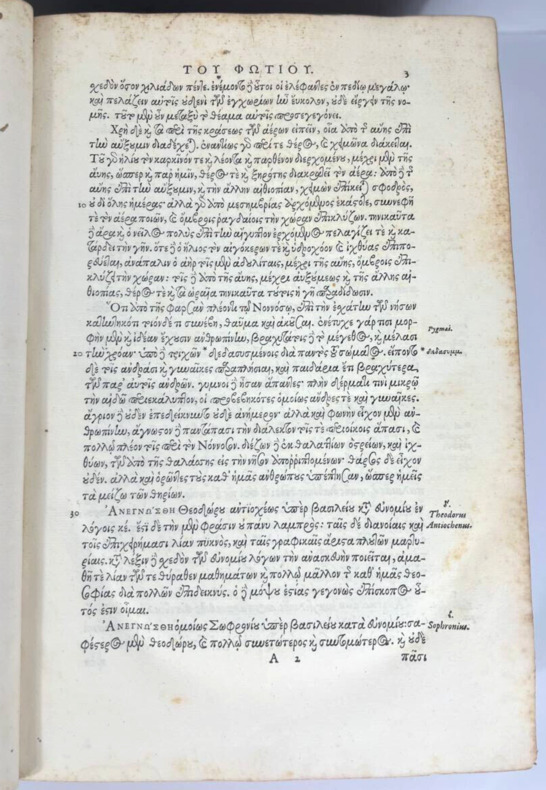 ΤΟΥ ΦΩΤΙΟΥ. 3
χεδὸν ὅσον χιλιάδων πέντε. ἐνέμοντο ὃ οὗτοι οἱ ἐλέφαντες ἐν πεδίῳ μεγάλῳ·
καὶ πελάζειν αὐτοῖς οὐδενὶ τῶν ἐγχωρίων ἦν εὔκολον, οὐδὲ εἴργειν τῆς νο-
μῆς. τοῦτο μὲν οὖν μεταξὺ τὸ θέαμα αὐτοῖς προσεγεγόνει.
Χρὴ δὲ ϗ τὰ περὶ τῆς κράσεως τῶν ἀέρων εἰπεῖν, οἷα ἀπὸ τῆς αὔης ἐπὶ
τὴν αὔξουμιν διαδέχεται. ἐναντίως γὰρ περί τε θέρος, καὶ χειμῶνα διάκειται.
Τοῦ γὰρ ἡλίου τὸν καρκίνον τε ϗ λέοντα ϗ παρθένον διερχομένου, μέχρι μὲν τῆς
αὔης, ὥσπερ ϗ παρ' ἡμῖν, θέρος τε ϗ ξηρότης διακρατεῖ τὸν ἀέρα: ἀπὸ δὲ τῆς
αὔης ἐπὶ τὴν αὔξουμιν, ϗ τὴν ἄλλην αἰθιοπίαν, χειμὼν ἐπίκειται σφοδρός,
10 οὐ δι' ὅλης ἡμέρας· ἀλλὰ γὰρ ἀπὸ μεσημβρίας ἀρχόμενος ἑκάστοτε, συννεφῆ
τε τὸν ἀέρα ποιῶν, καὶ ὄμβροις ῥαγδαίοις τὴν χώραν ἐπικλύζων. τηνικαῦτα
δὲ ἄρα ϗ ὁ νεῖλος πολὺς ἐπὶ τὴν αἴγυπτον ἐρχόμενος πελαγίζει τε ϗ κα-
τάρδει τὴν γῆν. ὅτε δὲ ὁ ἥλιος τὸν αἰγόκερων τε ϗ ὑδροχόον καὶ ἰχθύας ἐπιπο-
ρεύεται, ἀνάπαλιν ὁ ἀὴρ τοῖς μὲν ἀδουλίταις, μέχρι τῆς αὔης, ὄμβροις ἐπι-
κλύζει τὴν χώραν: τοῖς δὲ ἀπὸ τῆς αὔης, μέχρι αὐξούμεως ϗ τῆς ἄλλης αἰ-
θιοπίας, θέρος τε ϗ τὰ ὡραῖα τηνικαῦτα τούτοις ἡ γῆ παραδίδωσιν.
Ὅτι ἀπὸ τῆς φαρσὰν πλέοντι τῷ Νοννόσῳ, ἐπὶ τὴν ἐσχάτην τῶν νήσων
κατηντηκότι τοιόνδε τι συνέβη, θαῦμα καὶ ἀκοῦσαι. ἐνέτυχε γάρ τισι μορ-
φὴν μὲν ϗ ἰδέαν ἔχουσιν ἀνθρωπίνην, βραχυτάτοις δὲ τὸ μέγεθος, ϗ μέλασι
Pygmæi.
20 τὴν χρόαν· ὑπὸ δὲ τριχῶν * δεδασυμένοις διὰ παντὸς τοῦ σώματος. εἵποντο
* δεδασυμμ.
δὲ τοῖς ἀνδράσι ϗ γυναῖκες παραπλήσιαι, καὶ παιδάρια ἔτι βραχύτερα,
τῶν παρ' αὐτοῖς ἀνδρῶν. γυμνοὶ δὲ ἦσαν ἅπαντες· πλὴν δέρματί τινι μικρῷ
τὴν αἰδῶ περιεκάλυπτον, οἱ προβεβηκότες ὁμοίως ἄνδρες τε καὶ γυναῖκες.
ἄγριον δὲ οὐδὲν ἐπεδείκνυντο οὐδὲ ἀνήμερον· ἀλλὰ καὶ φωνὴν εἶχον μὲν ἀν-
θρωπίνην, ἄγνωστον δὲ παντάπασι τὴν διάλεκτον τοῖς τε περιοίκοις ἅπασι, καὶ
πολλῷ πλέον τοῖς περὶ τὸν Νόννοσον. διέζων δὲ ἐκ θαλαττίων ὀστρείων, καὶ ἰχ-
θύων, τῶν ἀπὸ τῆς θαλάσσης εἰς τὴν νῆσον ἀπορριπτομένων· θάρσος δὲ εἶχον
οὐδέν. ἀλλὰ καὶ ὁρῶντες τοὺς καθ' ἡμᾶς ἀνθρώπους ὑπέπτησαν, ὥσπερ ἡμεῖς
τὰ μείζω τῶν θηρίων.
30 ΑΝΕΓΝΩΣΘΗ Θεοδώρου ἀντιοχέως ὑπὲρ βασιλείου κατ' εὐνομίου ἐν
Theodorus
λόγοις κέ. ἔστι δὲ τὴν μὲν φράσιν οὐ πάνυ λαμπρός: ταῖς δὲ διανοίαις καὶ
Antiochenus.
τοῖς ἐπιχειρήμασι λίαν πυκνός, καὶ ταῖς γραφικαῖς ἄριστα πλουτῶν μαρτυ-
ρίαις. κατὰ λέξιν δὲ σχεδὸν τῶν εὐνομίου λόγων τὴν ἀνασκευὴν ποιεῖται, ἀμα-
θῆ τε λίαν τῶν τε θύραθεν μαθημάτων ϗ πολλῷ μᾶλλον τῆς καθ' ἡμᾶς θεο-
σοφίας διὰ πολλῶν ἐπιδεικνύς. ὁ δὲ μόψου ἑστίας γεγονὼς ἐπίσκοπος οὗ-
τός ἐστιν οἶμαι.
ΑΝΕΓΝΩΣΘΗ ὁμοίως Σωφρονίου ὑπὲρ βασιλείου κατὰ εὐνομίου· σα-
Sophronius.
φέστερος μὲν θεοδώρου, καὶ πολλῷ συνετώτερος ϗ συντομώτερος. ϗ οὐδὲ
A 2 πᾶσι